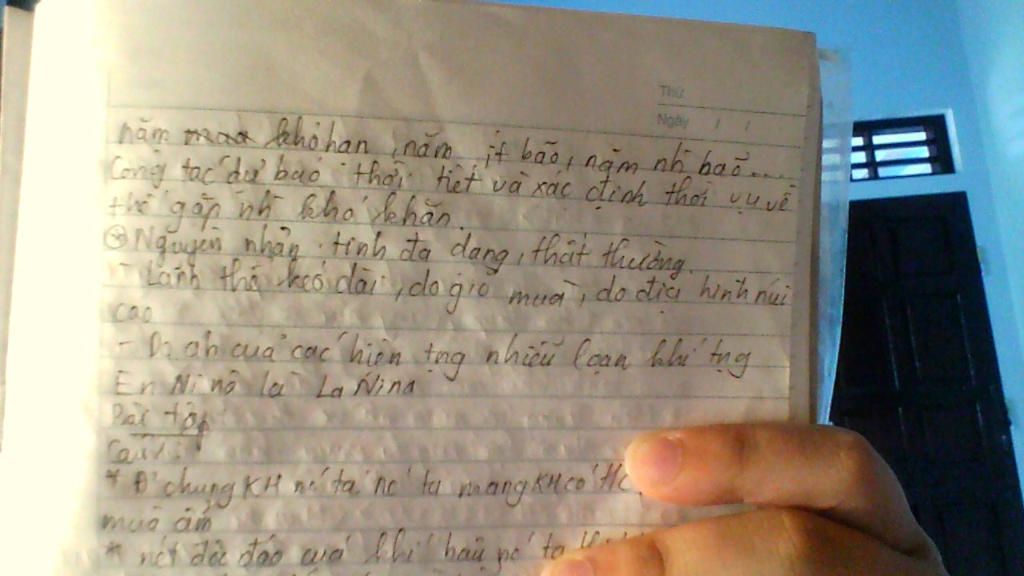 Thứ
Ngày / /
năm khô hạn, năm ít bão, năm nh bão...
Công tác dự báo thời tiết và xác định thời vụ vì
thế gặp nh khó khăn.
* Nguyên nhân tính đa dạng, thất thường.
- Lãnh thổ kéo dài, do gió mùa, do địa hình núi
cao
- Do ah của các hiện tg nhiễu loạn khí tg
En Ninô la La Nina
Bài tập
Câu 1:
* Đ² chung KH nc ta: nc ta mang KH có tc
mùa ẩm
* nét độc đáo của khí hậu nc ta